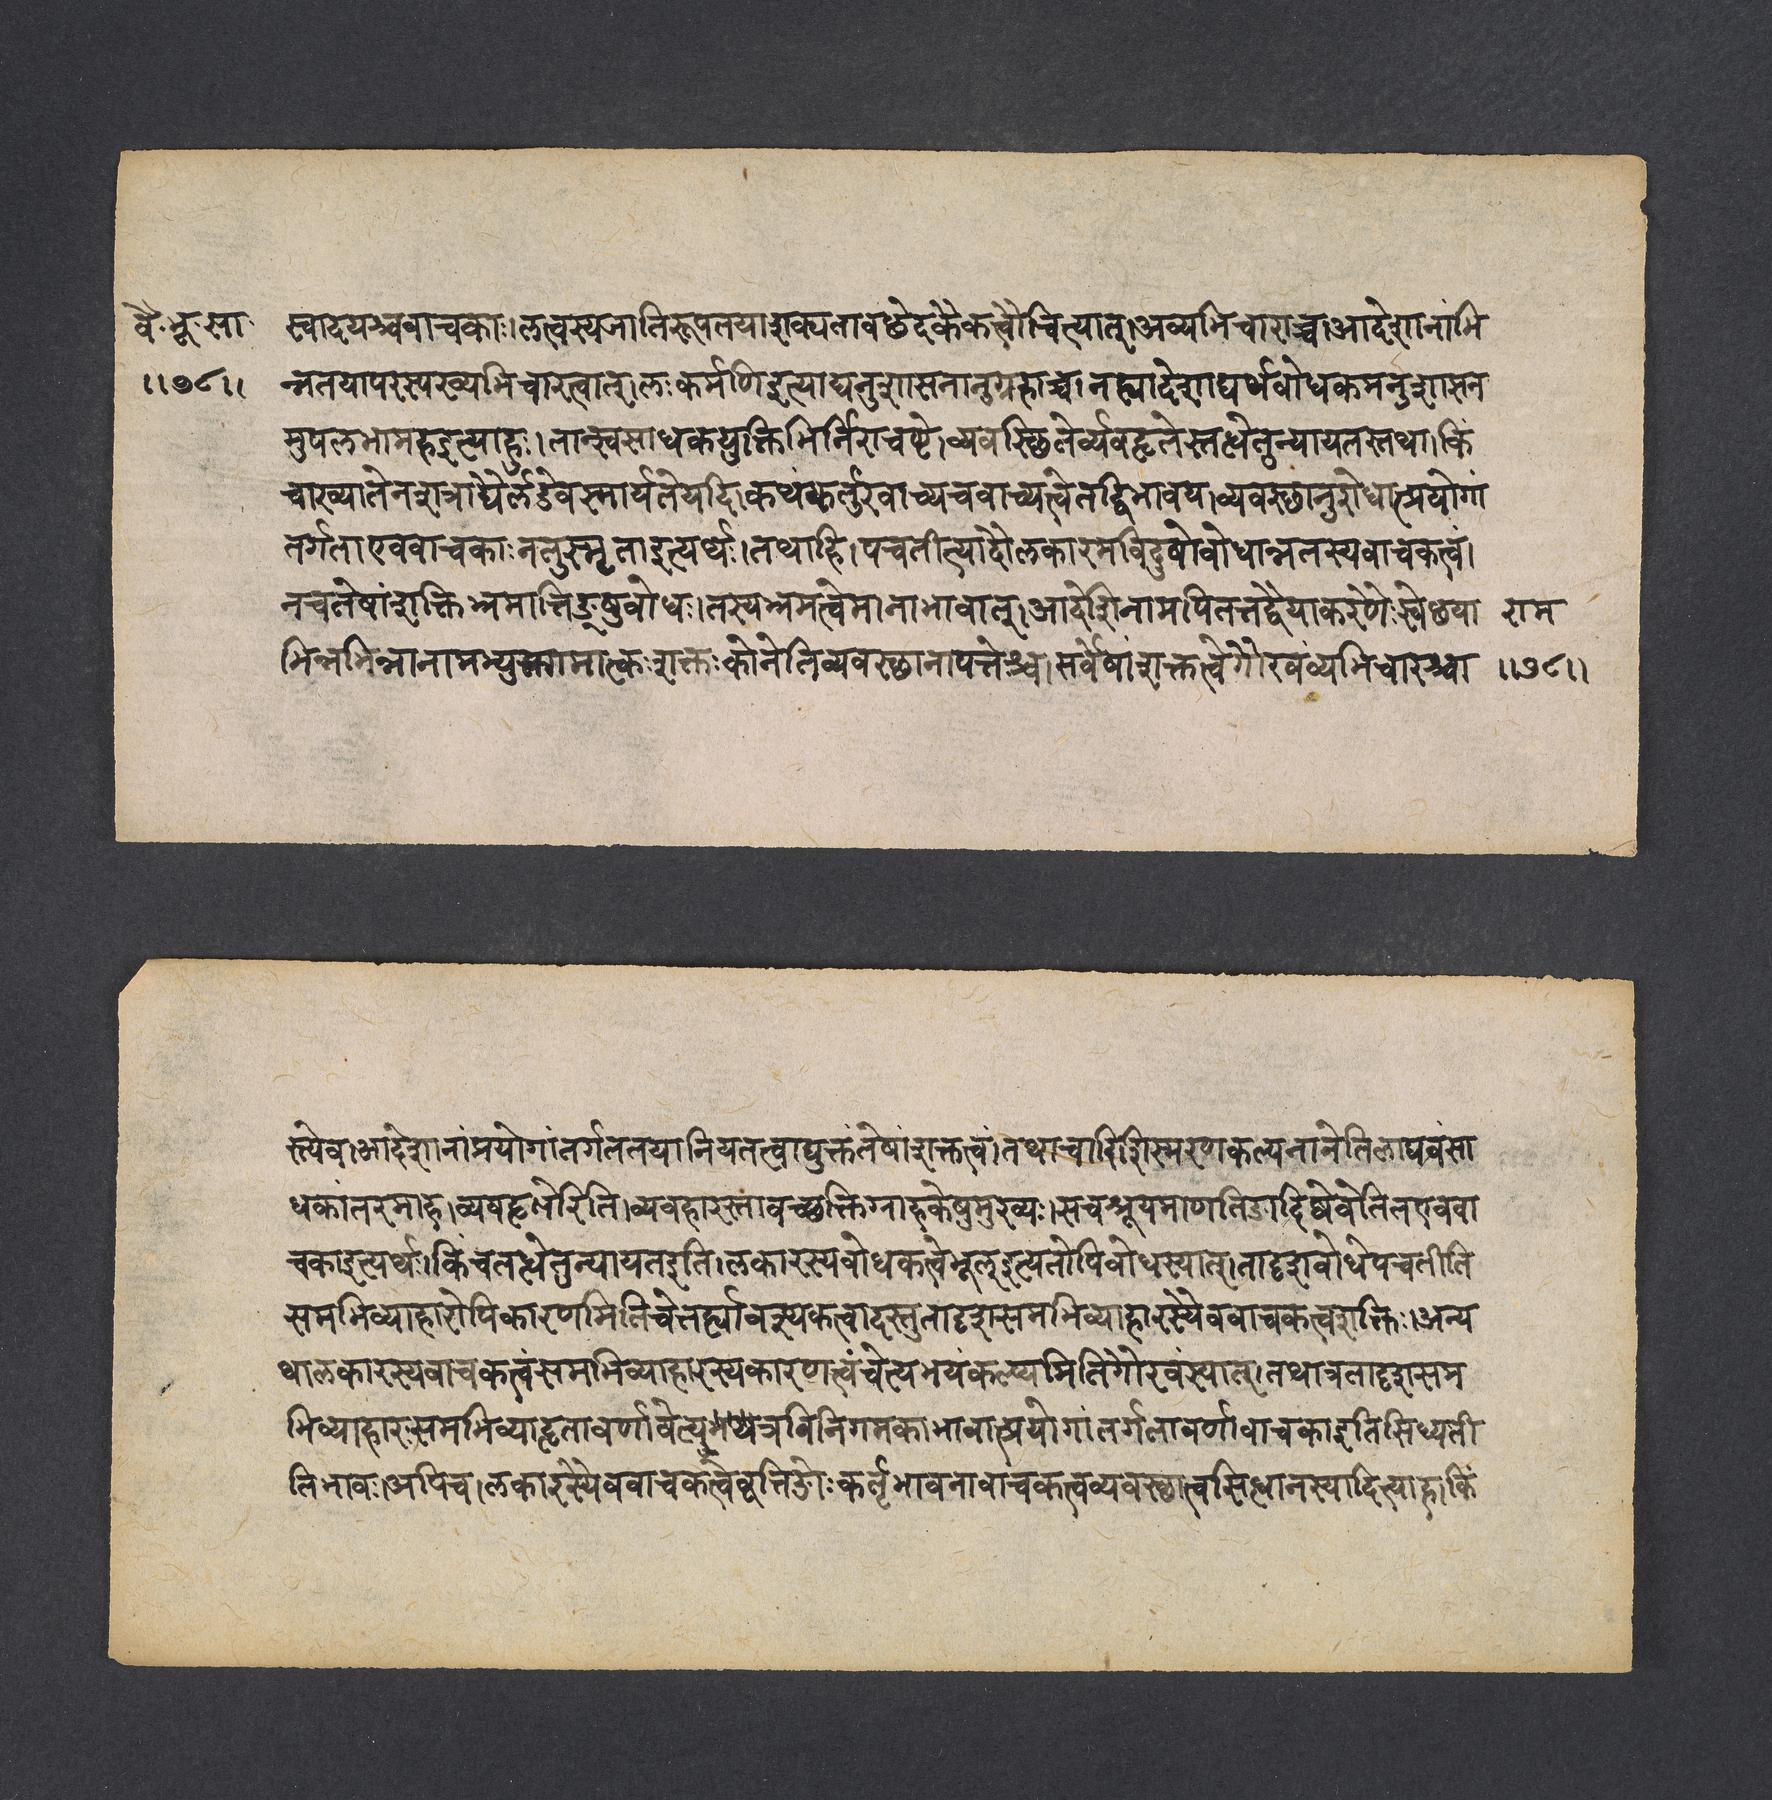 वै॰भू॰सा॰ स्वादयश्चवाचकाः।लत्वस्यजातिरूपतयाशक्यतावछेदकैकत्वौचित्यात्।अव्यभिचाराच्च।आदेशानांभि
॥७८॥ न्नतयापरस्परव्यभिचारत्वात्।लःकर्मणिइत्याद्यनुशासनानुग्रहाच्च।नह्यादेशाद्यर्थबोधकमनुशासन
मुपलभामहइत्याहुः।तान्स्वसाधकयुक्तिभिर्निराचष्टे।व्यवस्थितेर्व्यवहृतेस्तद्धेतुन्यायतस्तथा।किं
चाख्यातेनशत्राद्यैर्लडेवस्मार्यतेयदि।कथंकर्तुरवाच्यचवाच्यत्वेतद्विभावय।व्यवस्छानुरोधात्प्रयोगां
तर्गताएववाचकाःनतुस्मृताइत्यर्थः।तथाहि।पचतीत्यादौलकारमविदुषोबोधान्नतस्यवाचकत्वं।
नचतेषांशक्तिभ्रमात्तिङ्षुबोधः।तस्यभ्रमत्वेमानाभावात्।आदेशिनामपितत्तद्वैयाकरणैःस्वेछया राम
भिन्नभिन्नानामभ्युपगमात्कःशक्तःकोनेतिव्यवस्छानापत्तेश्च।सर्वेषांशक्तत्वेगौरवंव्यभिचारश्चा ॥७८॥
स्त्येव।आदेशानांप्रयोगांतर्गततयानियतत्वाद्युक्तंतेषांशक्तत्वं।तथाचादेशिस्मरणकल्पनानेतिलाघवंसा
धकांतरमाह।व्यवहृतेरिति।व्यवहारस्तावच्छक्तिग्राहकेषुमुख्यः।सचश्रूयमाणतिङादिष्वेवेतितएववा
चकाइत्यर्थः।किंचतद्धेतुन्यायतइति।लकारस्यबोधकत्वेभूल्इत्यतोपिबोधस्यात्।तादृशबोधेपचतीति
समभिव्याहारोपिकारणमितिचेत्तर्ह्यावश्यकत्वादस्तुतादृशसमभिव्याहारस्यैववाचकत्वशक्तिः।अन्य
थालकारस्यवाचकत्वंसमभिव्याहारस्यकारणत्वंचेत्युभयंकल्प्यमितिगौरवंस्यात्।तथात्रतादृशसम
भिव्याहारःसमभिव्याहृतावर्णावेत्यत्रविनिगमकाभावात्प्रयोगांतर्गतावर्णावाचकाइतिसिध्यती
तिभावः।अपिच।लकारस्यैववाचकत्वेकृत्तिङोःकर्तृभावनावाचकत्वव्यवस्छात्वसिद्धानस्यादित्याह।किं